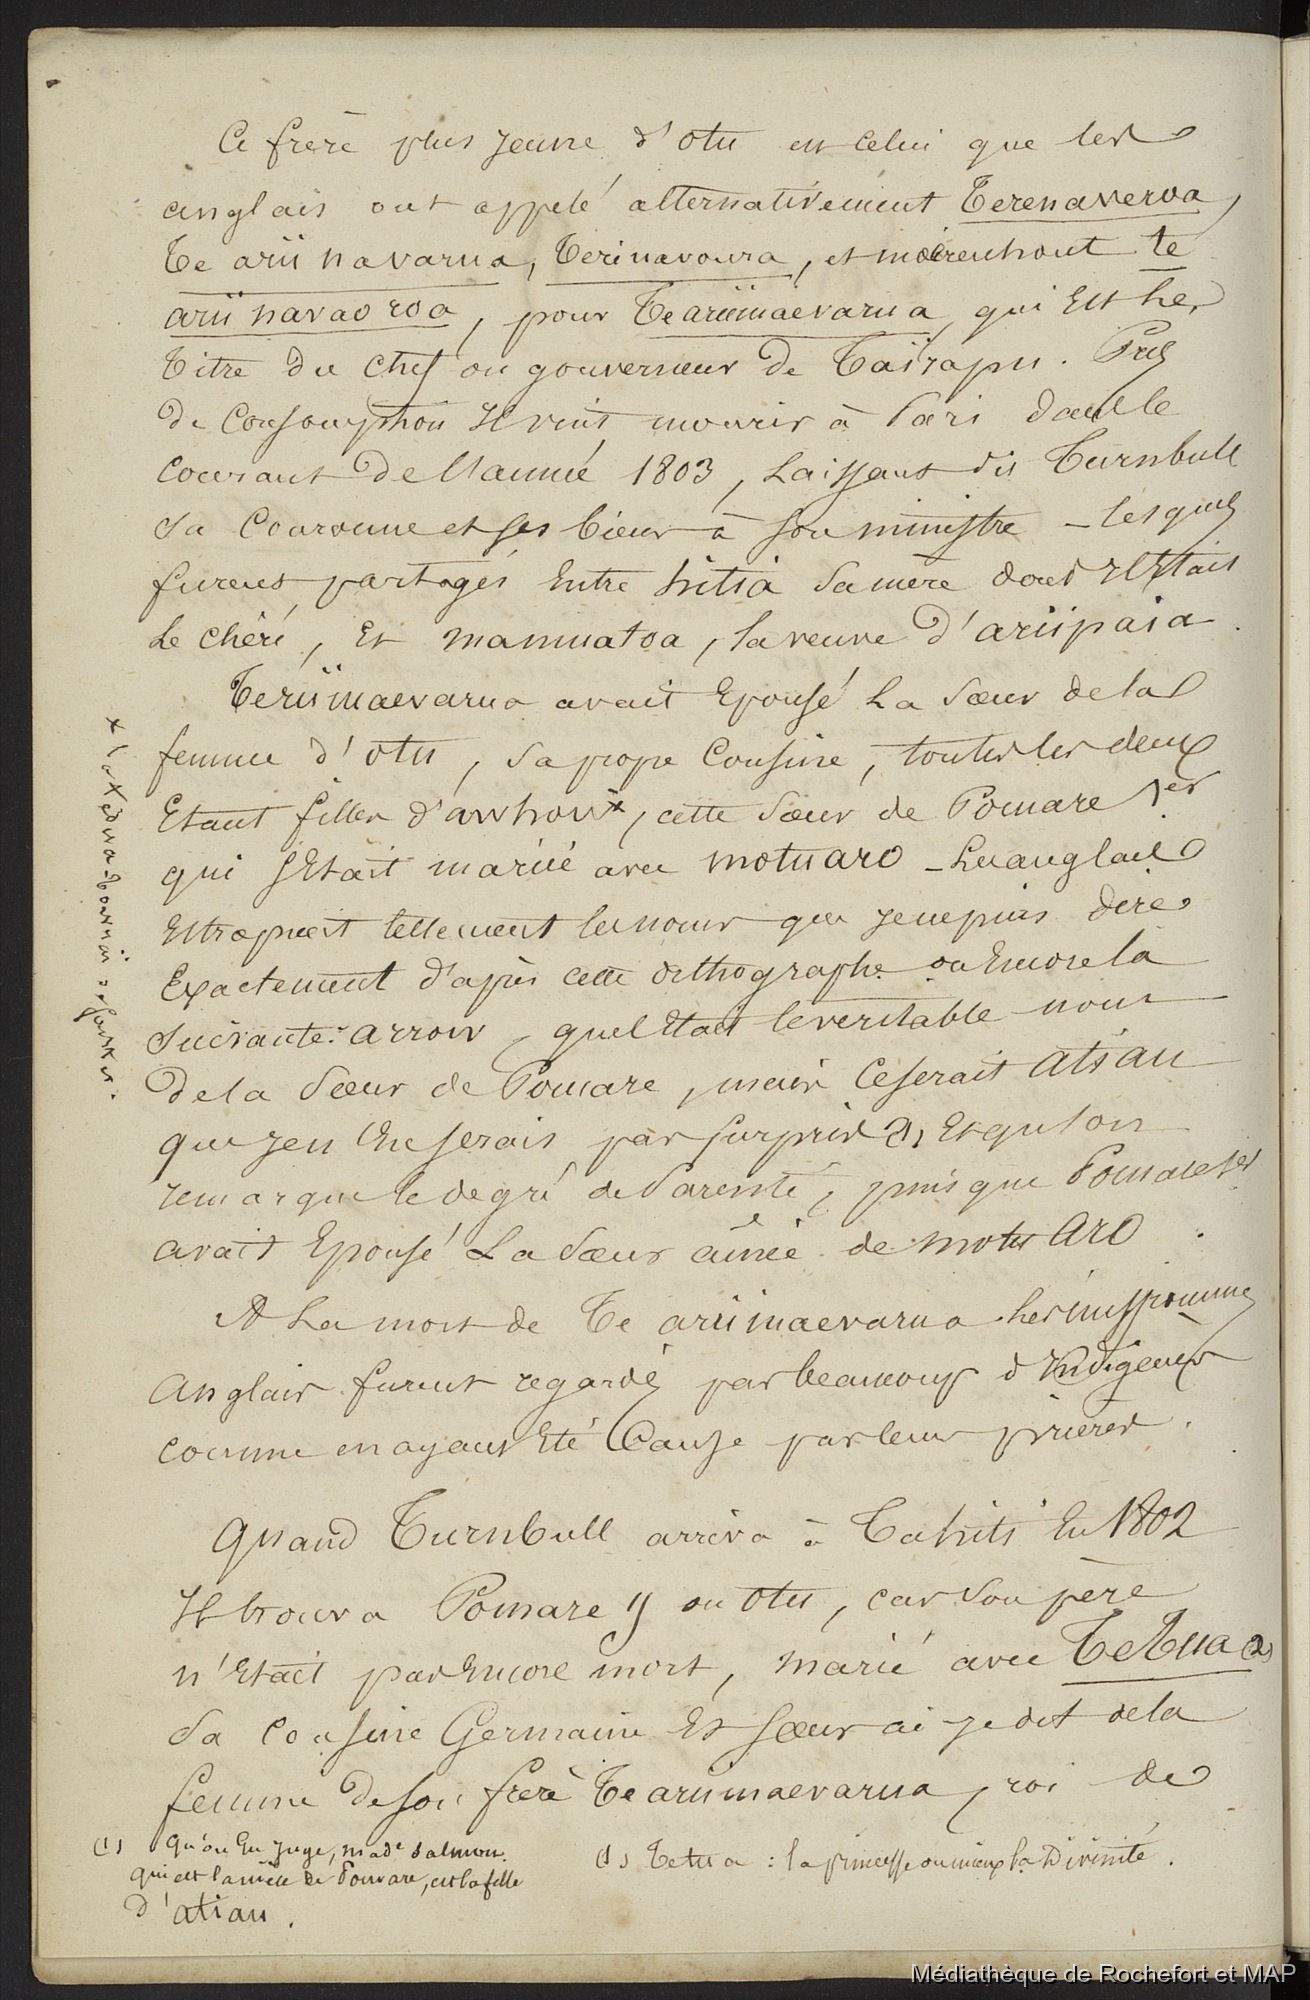 Ce frère plus jeune d'Otu est celui que les
anglais ont appelé alternativement Terenaveroa,
Te arii navarua, Terinavoura, et moërenhout te
arii navaoroa, pour Te ariimaevarua, qui Est le
titre du chef ou gouverneur de Taïrapu. Pris
de Consomption Il vint mourir à Pari dans le
courant de l'année 1803, Laissant dit Turnbull
sa Couronne et ses biens à son ministre - lesquels
furent partagés Entre hitia sa mère dont il Etait
Le chéri, Et mannatoa, la veuve d'ariipaia.
Teriimaevarua avait Epousé La Sœur de la
femme d'Otu, sa propre Cousine, toutes les deux
Etant filles d'arrhow x, cette Sœur de Pomare 1er
qui s'Etait mariée avec motuaro - Les anglais
Estropient tellement les noms que je ne puis dire
Exactement d'après cette orthographe ou Encore la
suivante: arrow, quel Etait le veritable nom
de la Sœur de Pomare, mais Ce serait atiau
que je n'En serais pas surpris (1) Et qu'on
remarque le degré de Parenté, puisque Pomare 1er
avait Epousé La Sœur ainée de motu aro.
A La mort de Te ariimaevarua les missionnaires
anglais furent regardés par beaucoup d'Indigenes
comme en ayant Eté Cause par leurs prières.
Quand Turnbull arriva à Tahiti En 1802
Il trouva Pomare II ou Otu, car Son père
n'Etait pas Encore mort, marié avec Tetua (2)
Sa Cousine Germaine Et sœur ai-je dit de la
femme de son frère Te ariimaevarua, roi de
(1) Qu'on En juge, made Salmon.
qui est la nièce de Pomare, est la fille
d'atiau.
(1) Tetua : la princesse ou mieux la Divinité.